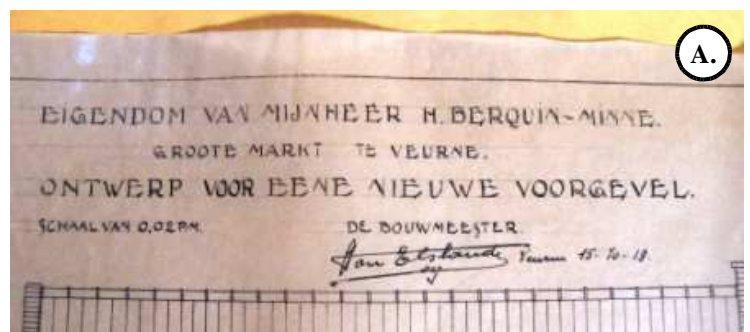 A.
EIGENDOM VAN MIJNHEER H. BERQUIN-MINNE.
GROOTE MARKT TE VEURNE.
ONTWERP VOOR EENE NIEUWE VOORGEVEL.
SCHAAL VAN 0,02 P.M. DE BOUWMEESTER.
Veurne 15-10-19.